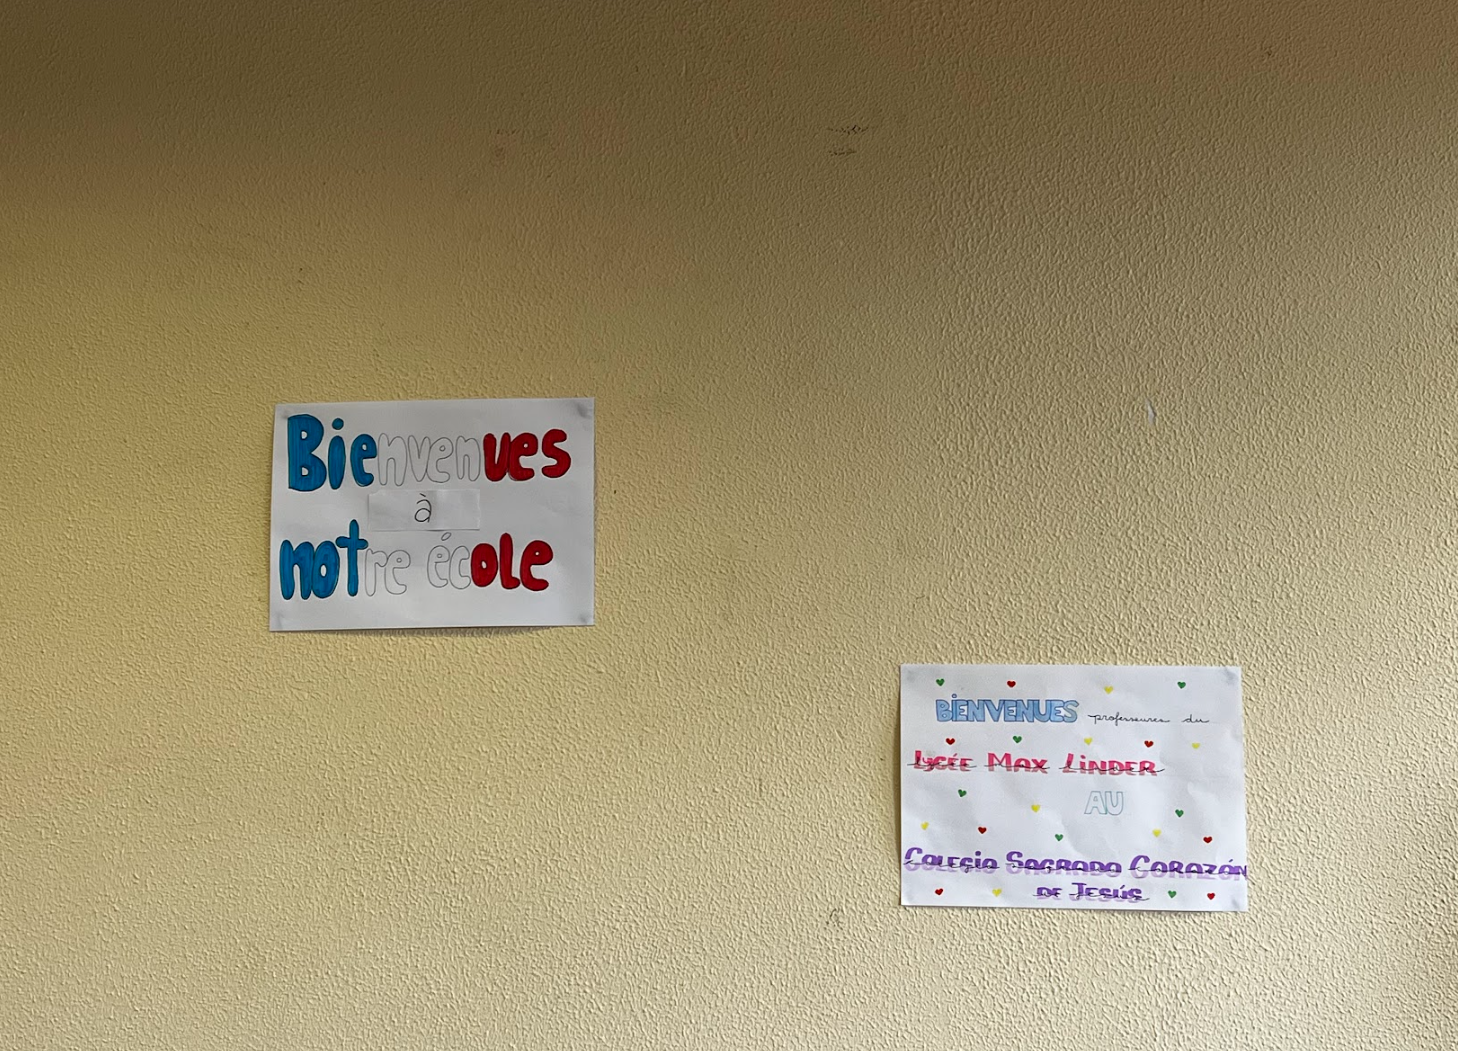 Bienvenues
à
notre école
BiENVENUES professeures du
Lycée Max Linder
AU
Colegio Sagrado Corazón
de Jesús